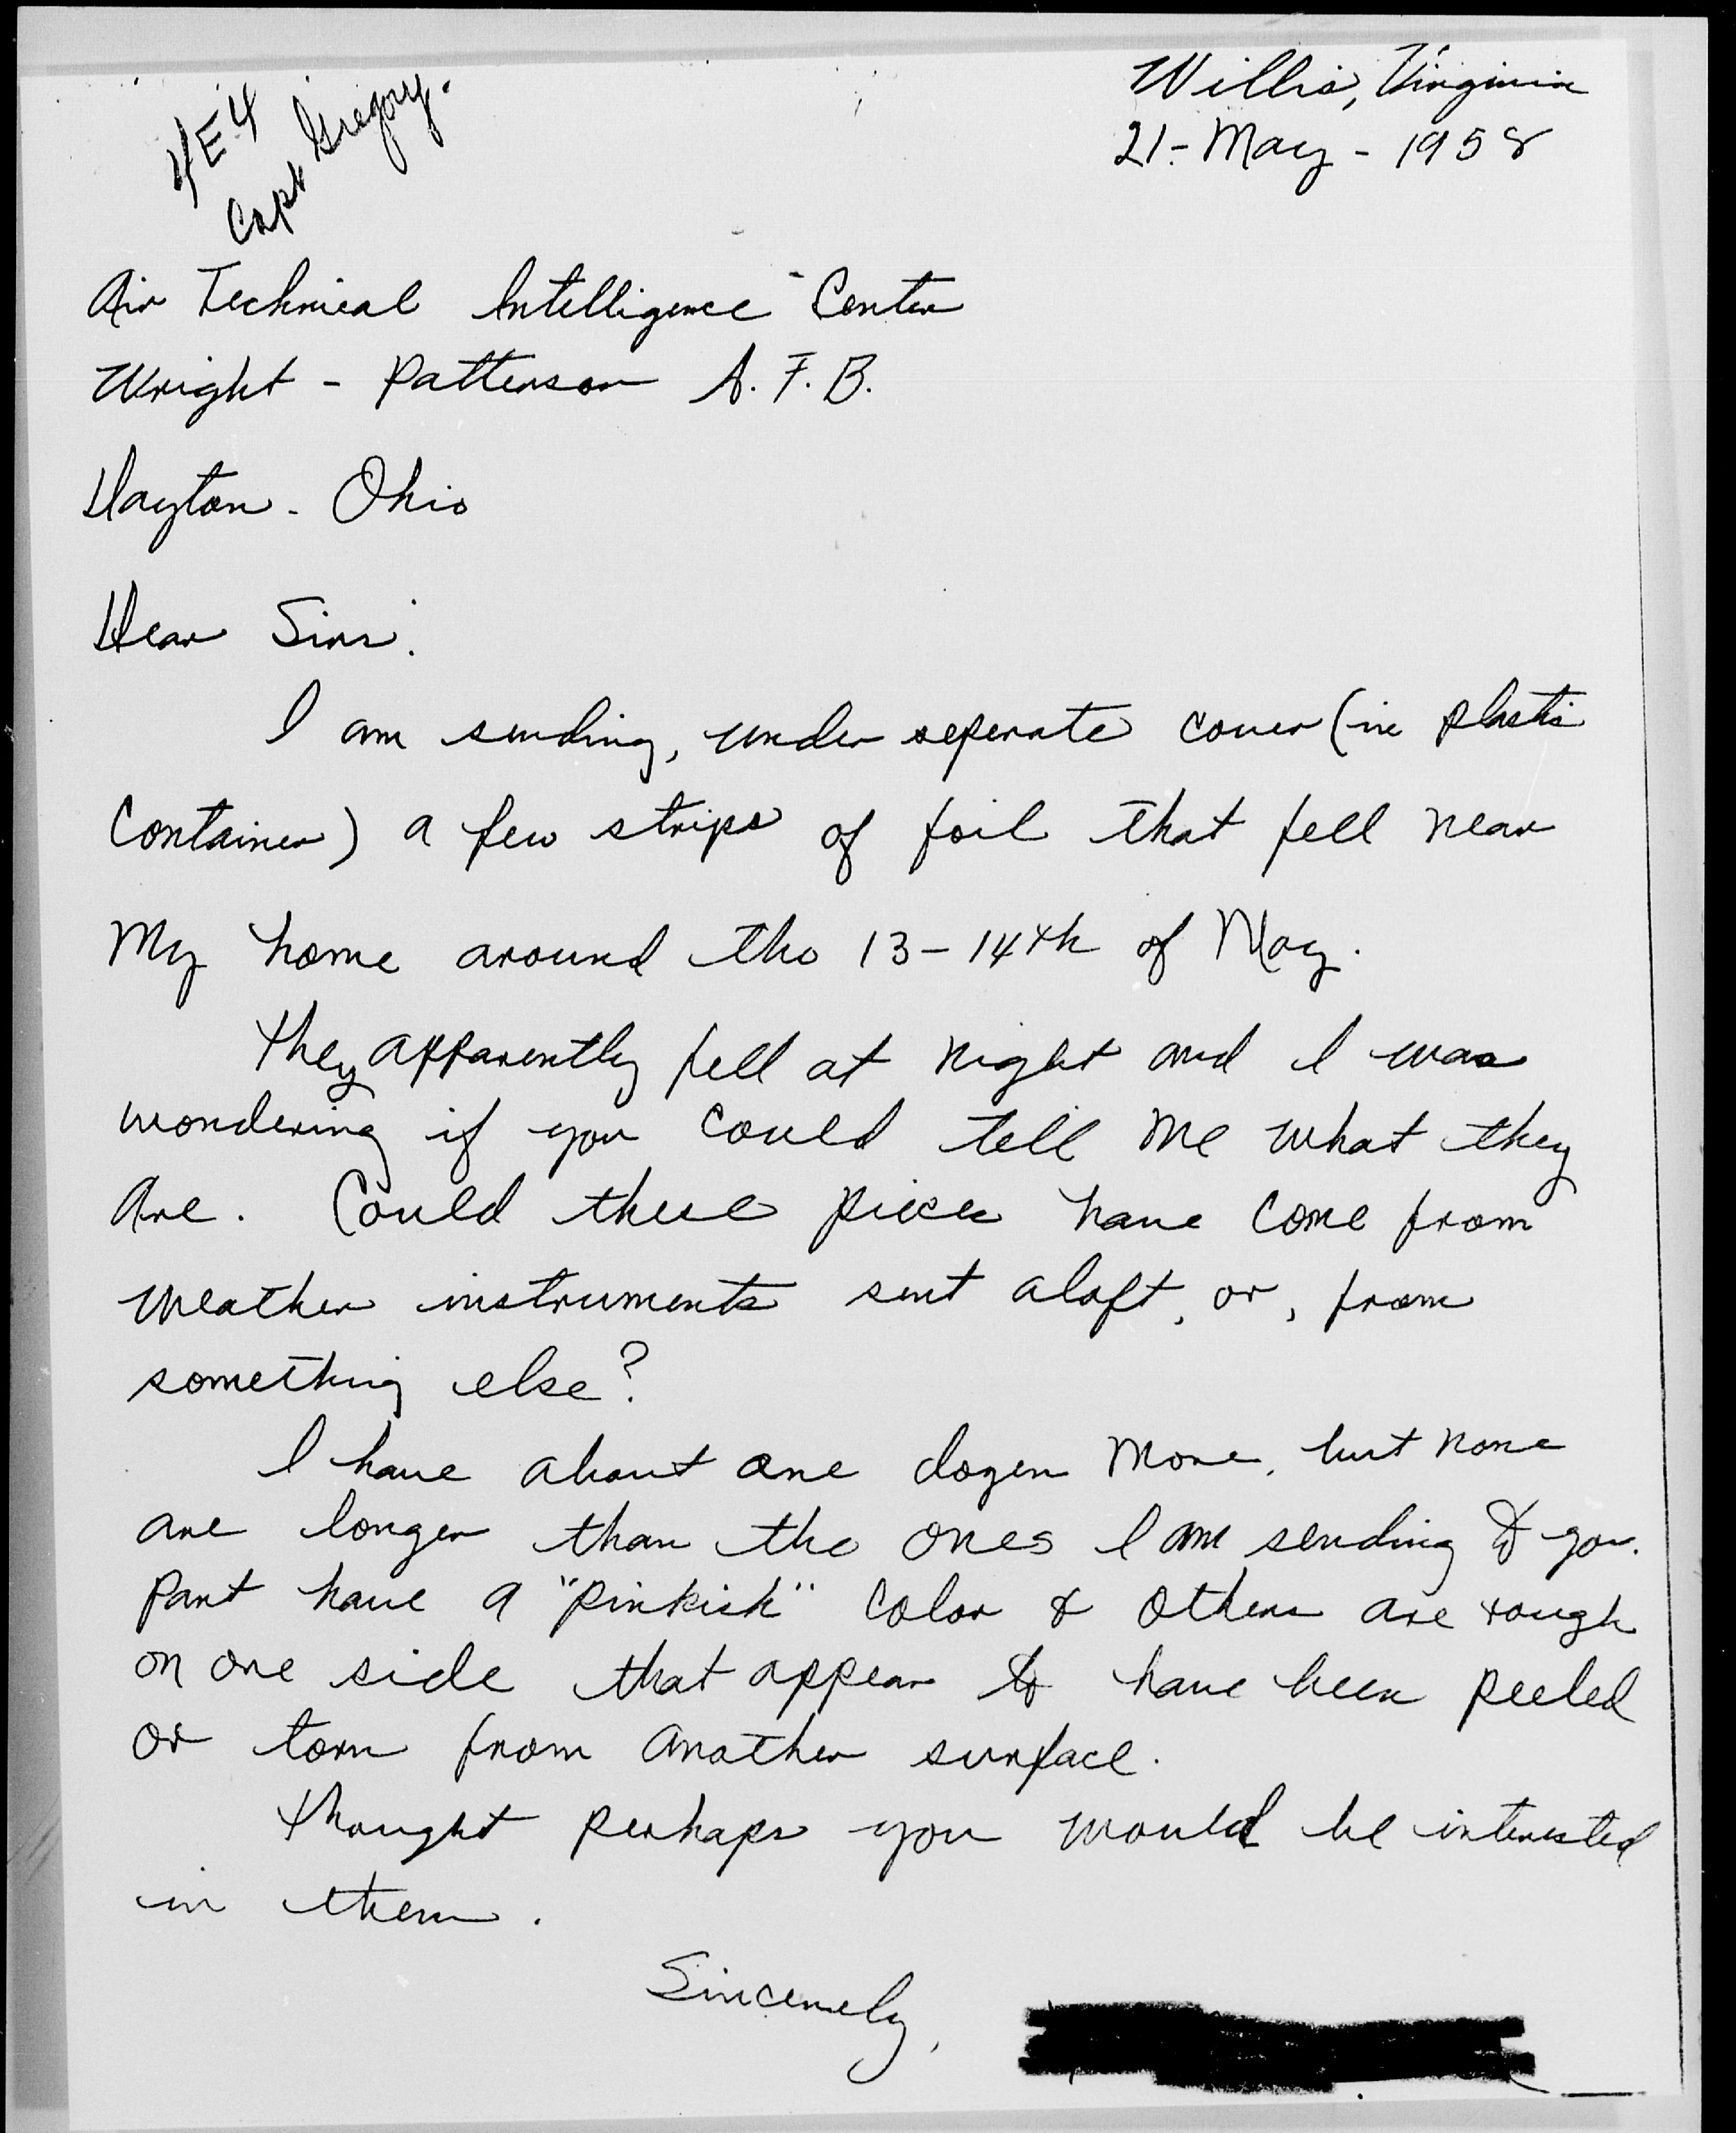 4E4
Capt Gregory.
Willis, Virginia
21-May-1958
Air Technical Intelligence Center
Wright-Patterson A.F.B.
Dayton-Ohio
Dear Sirs:
I am sending, under seperate cover (in plastic
container) a few strips of foil that fell near
my home around the 13-14th of May.
They apparently fell at night and I was
wondering if you could tell me what they
are. Could these pieces have come from
weather instruments sent aloft, or, from
something else?
I have about one dozen more, but none
are longer than the ones I am sending to you.
Part have a "pinkish" color & others are rough
on one side that appear to have been peeled
or torn from another surface.
Thought perhaps you would be interested
in them.
Sincerely,